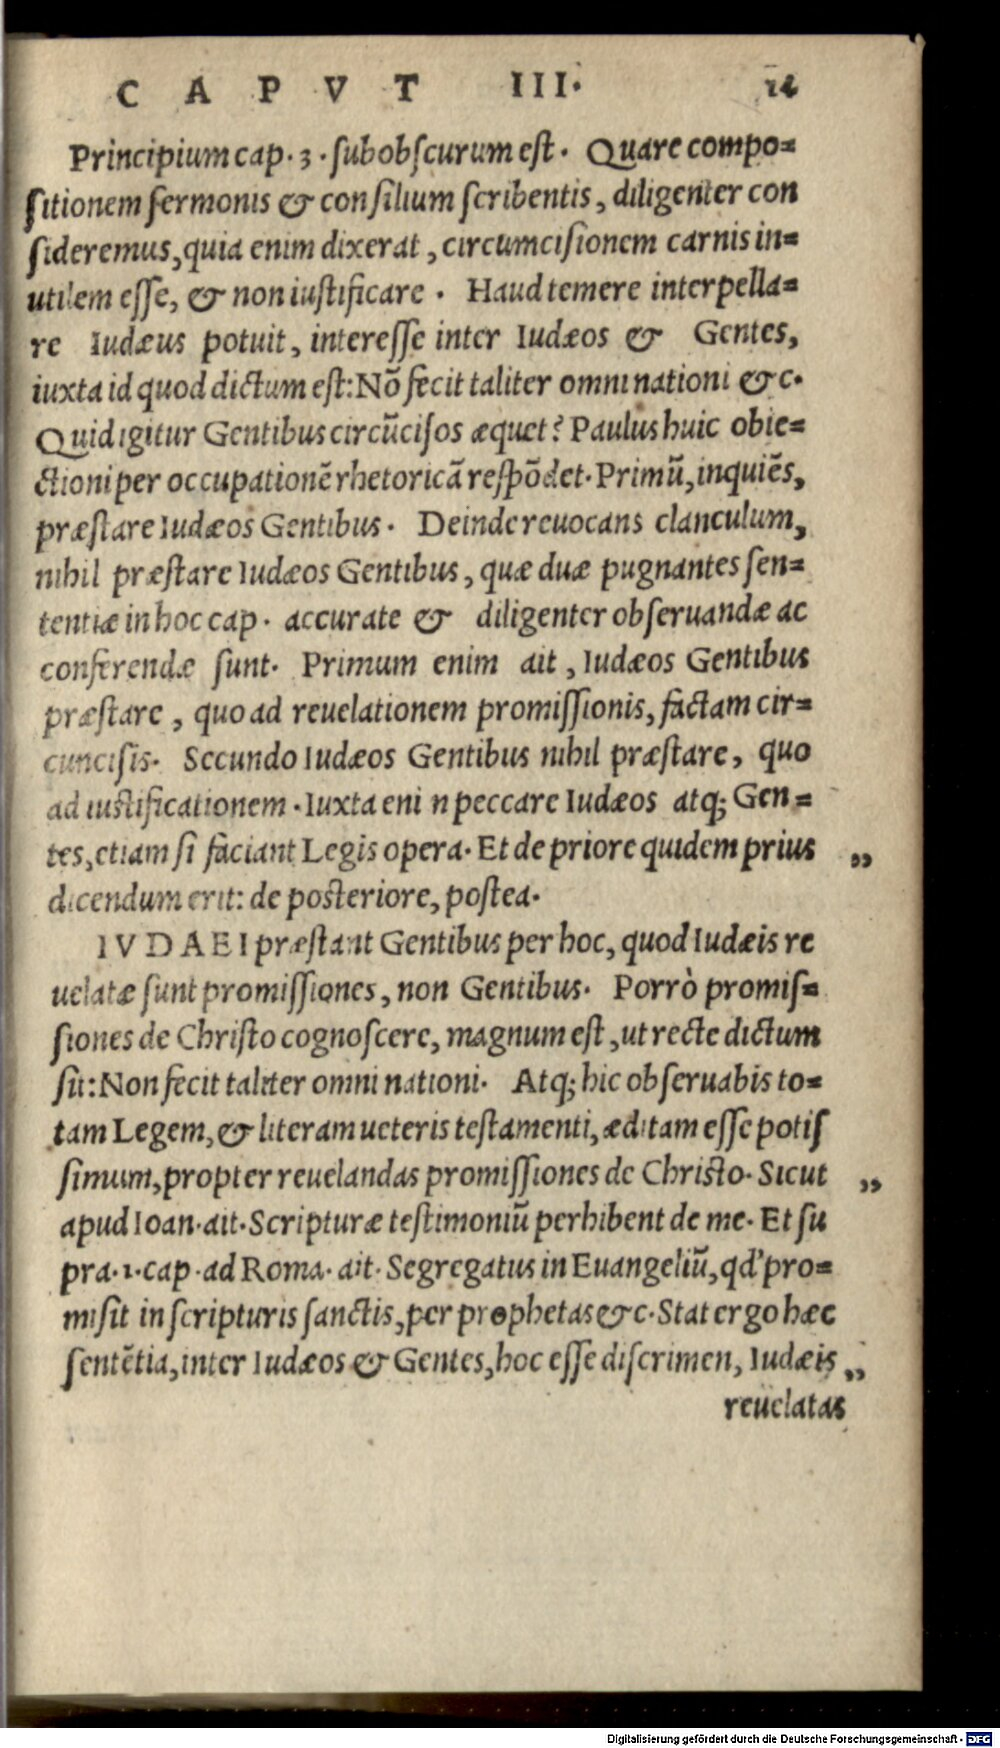 CAPVT III. 14
Principium cap. 3. subobscurum est. Quare compo=
sitionem sermonis & consilium scribentis, diligenter con
sideremus, quia enim dixerat, circumcisionem carnis in=
utilem esse, & non iustificare. Haud temere interpella=
re Iudæus potuit, interesse inter Iudæos & Gentes,
iuxta id quod dictum est: Nõ fecit taliter omni nationi &c.
Quid igitur Gentibus circũcisos æquet? Paulus huic obie=
ctioni per occupationẽ rhetoricã respõdet. Primũ, inquiẽs,
præstare Iudæos Gentibus. Deinde reuocans clanculum,
nihil præstare Iudæos Gentibus, quæ duæ pugnantes sen=
tentiæ in hoc cap. accurate & diligenter obseruandæ ac
conferendæ sunt. Primum enim ait, Iudæos Gentibus
præstare, quo ad reuelationem promissionis, factam cir=
cuncisis. Secundo Iudæos Gentibus nihil præstare, quo
ad iustificationem. Iuxta eni n peccare Iudæos atq; Gen=
tes, etiam si faciant Legis opera. Et de priore quidem prius „
dicendum erit: de posteriore, postea.
IVDAEI præstant Gentibus per hoc, quod Iudæis re
uelatæ sunt promissiones, non Gentibus. Porrò promis=
siones de Christo cognoscere, magnum est, ut recte dictum
sit: Non fecit taliter omni nationi. Atq; hic obseruabis to=
tam Legem, & literam ueteris testamenti, æditam esse potis
simum, propter reuelandas promissiones de Christo. Sicut „
apud Ioan. ait. Scripturæ testimoniũ perhibent de me. Et su
pra. 1. cap. ad Roma. ait. Segregatus in Euangeliũ, qd' pro=
misit in scripturis sanctis, per prophetas &c. Stat ergo hæc
sentẽtia, inter Iudæos & Gentes, hoc esse discrimen, Iudæis „
reuelatas
Digitalisierung gefördert durch die Deutsche Forschungsgemeinschaft - DFG